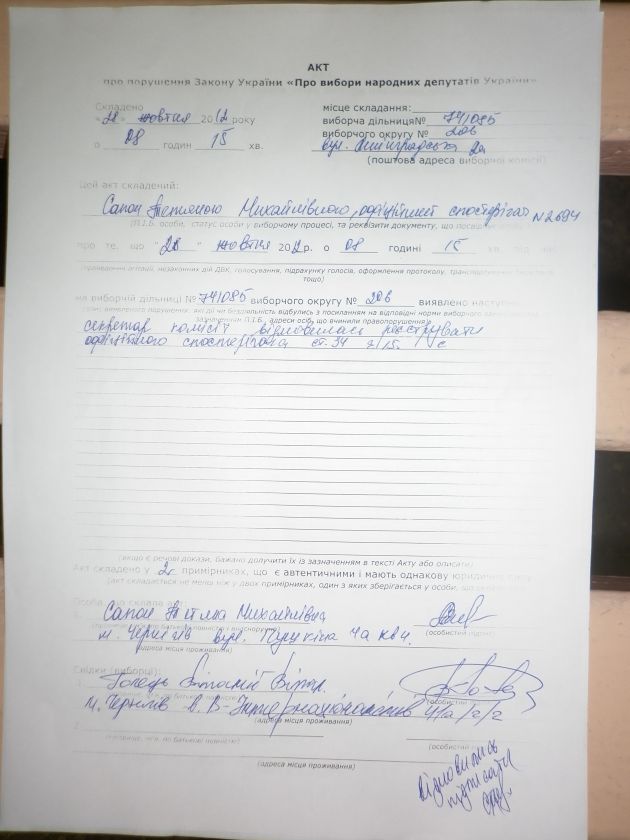 АКТ
про порушення Закону України «Про вибори народних депутатів України»
Складено
"28" жовтня 2012 року
о 08 годин 15 хв.
місце складання:
виборча дільниця№ 741085
виборчого округу № 206
вул. 2а
(поштова адреса виборчої комісії)
Цей акт складений:
Сапон Тетяною Михайлівною, офіційний спостерігач N 2694
(П.І.Б. особи, статус особи у виборчому процесі, та реквізити документу, що
про те, що "28" жовтня 2012р. о 08 годині 15 хв. під час
(проведенні агітації, незаконних дій ДВК, голосування, підрахунку голосів, оформлення протоколу, транспортування
тощо)
на виборчій дільниці № 741085 виборчого округу № 206 виявлено наступне
порушення: які дії чи бездіяльність відбулись з посиланням на відповідні норми виборчого
зазначенням П.І.Б., адреси осіб, що вчинили правопорушення)
секретар комісії відмовилась реєструвати
офіційного спостерігача ст. 34 15.
(якщо є речові докази, бажано долучити їх із зазначенням в тексті Акту або описати)
Акт складено у 2х примірниках, що є автентичними і мають однакову юридичну силу
(акт складається не менш ніж у двох примірниках, один з яких зберігається у особи, що
Особа, що склала
Сапон Тетяна Михайлівна
м. Чернігів вул. Пушкіна 4а кв 4.
(особистий підпис)
(адреса місця проживання)
Свідки (виборці):
1.
Віталій
(особистий
м. Чернігів
(адреса місця проживання)
2.
(прізвище, ім'я, по батькові повністю)
(особистий
(адреса місця проживання)
відмовились
підписати